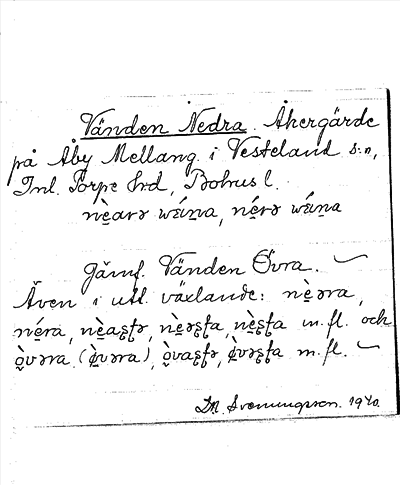 Vänden Nedra. Åkergärde
på Åby Mellang. i Vesteland s:n,
Inl. Torpe hd, Bohus l.
nè̱arə wɛ́ina, né̱rə wɛ́ina
Jämf. Vänden Övra.
Även i utt. växlande: nè̱ərra,
né̱ra, nè̱aʂʈə, nè̱əʂʈa, nè̱ʂʈa m.fl. och
ò̱vərra (ø̀vərra), ò̱vaʂʈə, ø̀vəʂʈa m.fl.
D.A. Svenungsson. 1940.